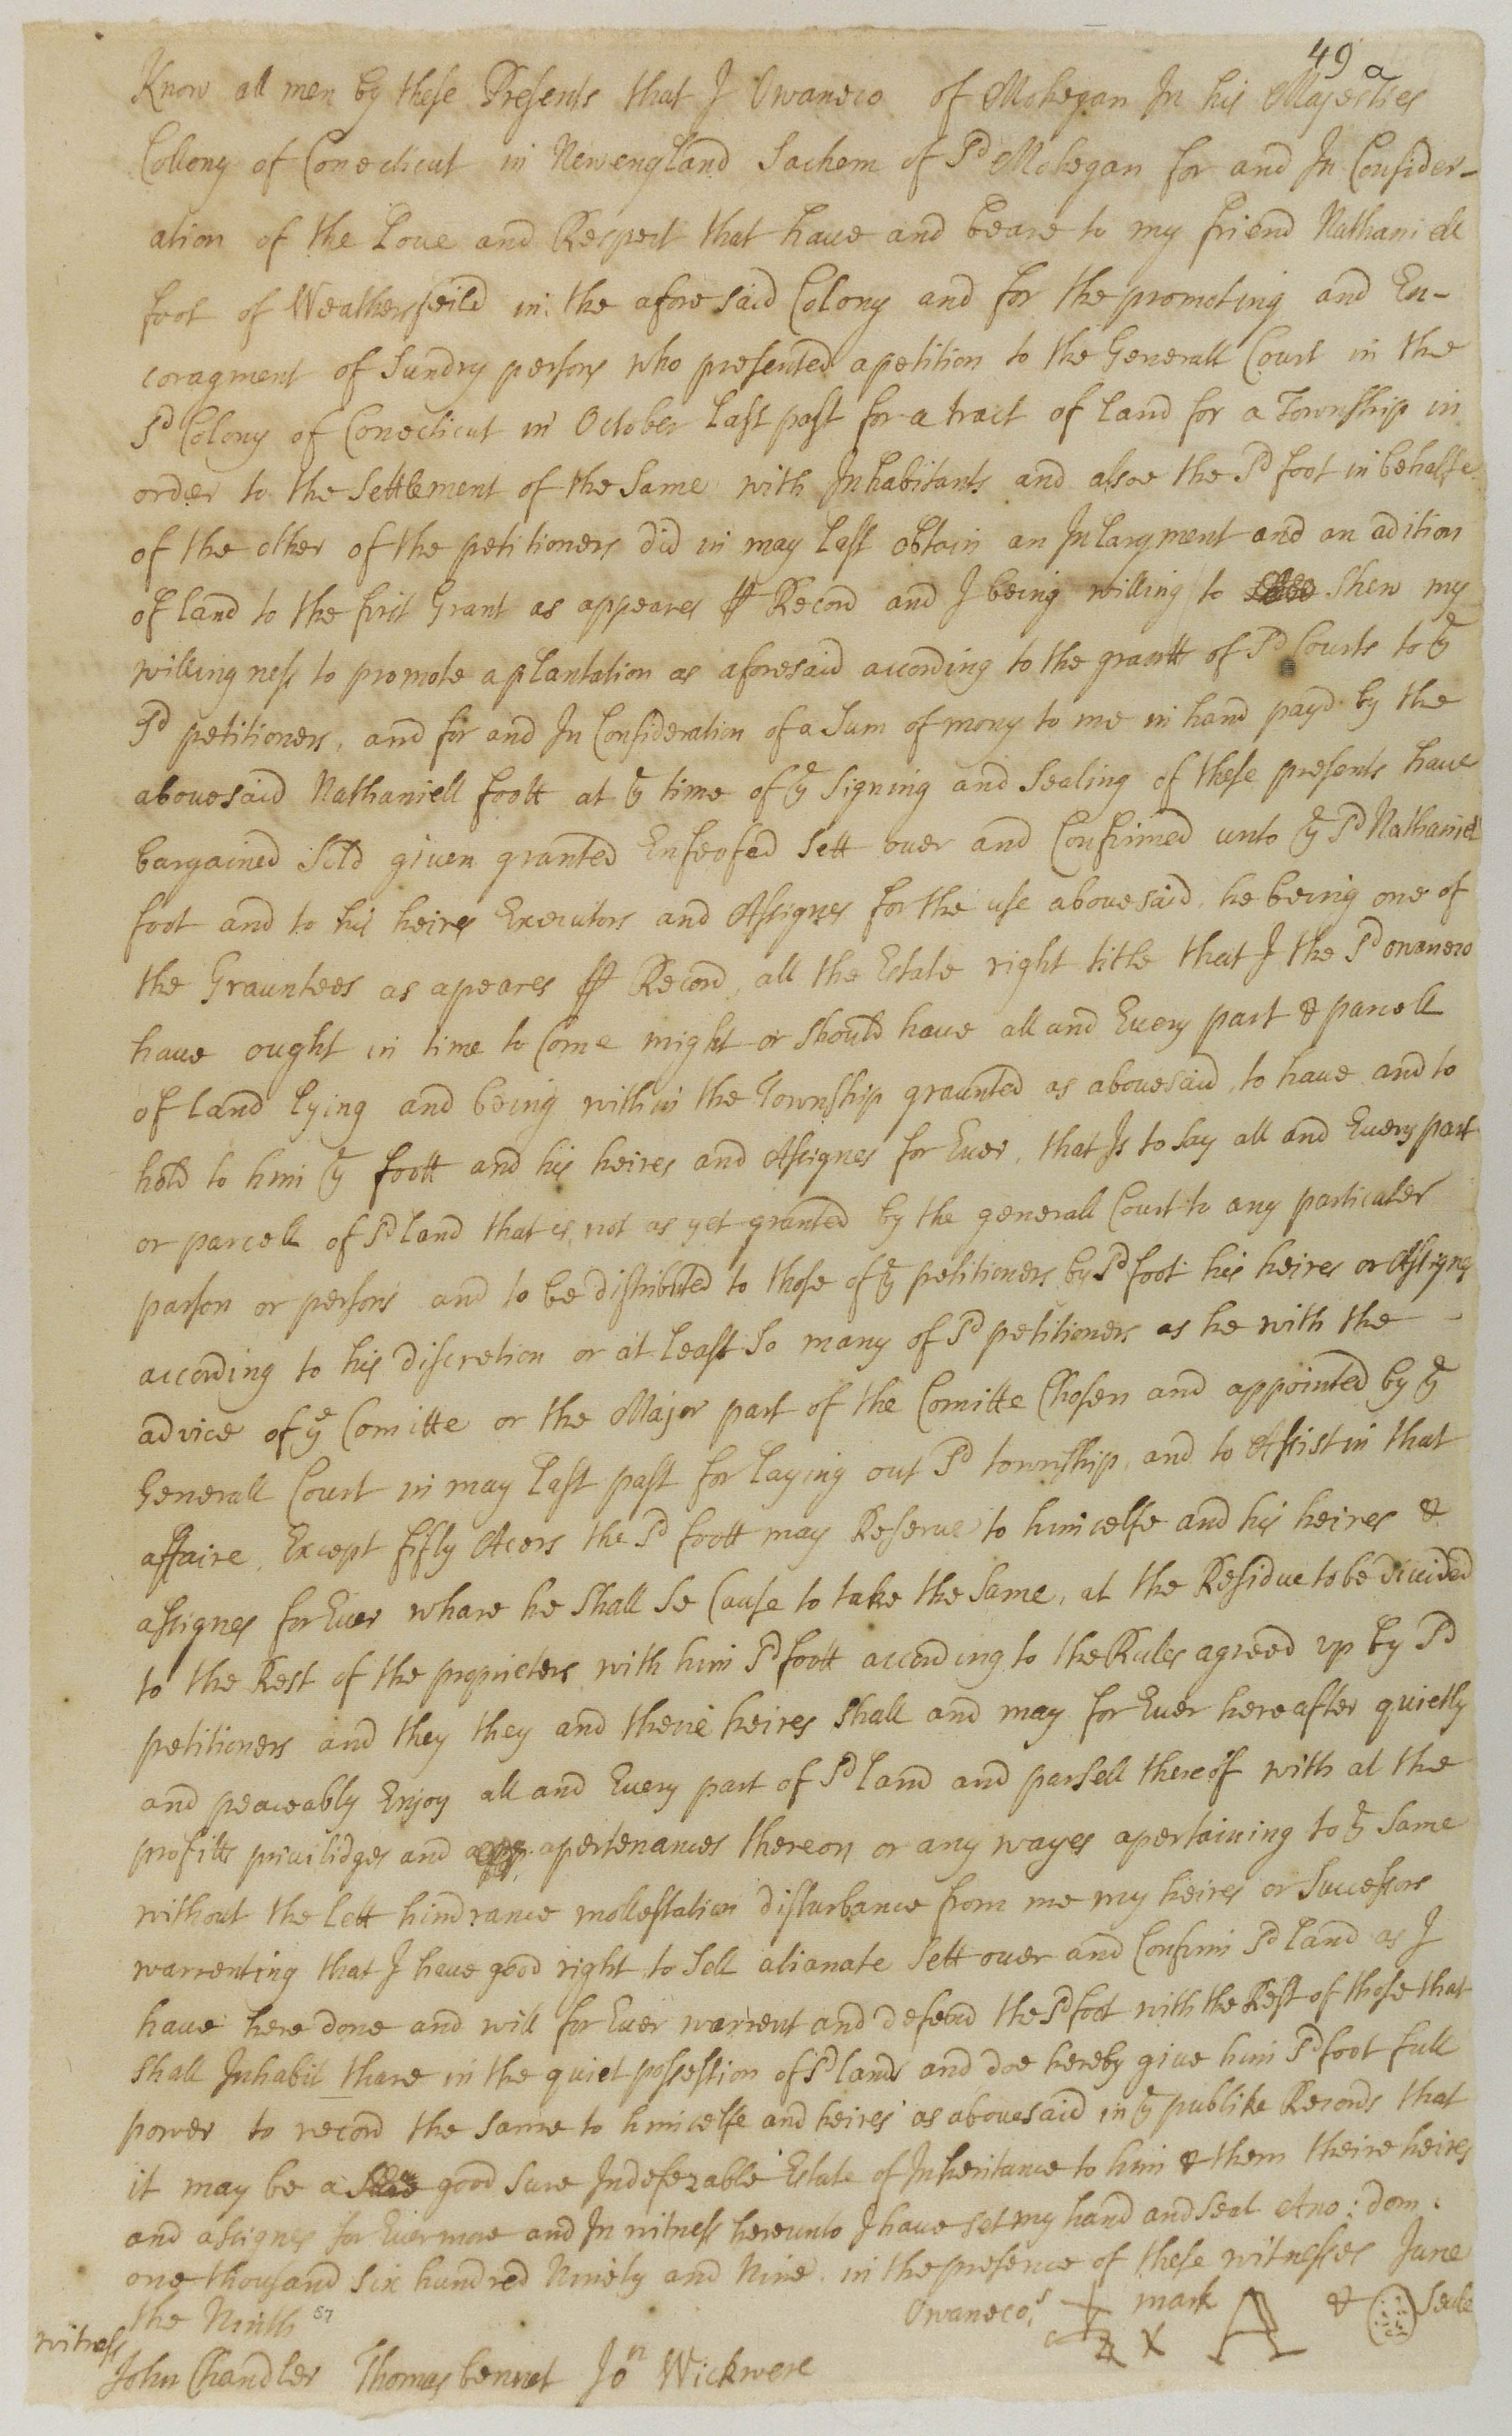 49 a
Know all men by these Presents that I Owaneco of Mohegan In his Majesties
Collony of Conecticut in Newengland Sachem of Sd Mohegan for and In Consider-
ation of the Loue and Respect that haue and beare to my friend Nathaniell
foot of Weathersfeild in the aforesaid Colony and for the promoting and En-
coragment of Sundry persons who presented a petition to the Generall Court in the
Sd Colony of Conecticut in October Last past for a tract of land for a Township in
order to the Settlement of the Same with Inhabitants and alsoe the Sd foot in behalfe
of the other of the petitioners did in may Last obtain an Inlargment and an adition
of land to the first Grant as appeares Record and I being willing to Shew my
willingness to promote a plantation as aforesaid according to the grantt of Sd Courts to ye
Sd petitioners, and for and In Consideration of a Sum of mony to me in hand payd by the
abouesaid Nathaniell foott at ye time of ye Signing and Sealing of these presents haue
bargained Sold giuen granted Enfeofed Sett ouer and Confirmed unto ye Sd Nathaniel
foot and to his heires Executors and Assignes for the use abouesaid, he being one of
the Grauntees as apeares Record, all the Estate right title that I the Sd owaneco
haue ought in time to Come might or Should haue all and Euery part & parcell
of land lying and being within the Township graunted as abouesaid, to haue and to
hold to him ye foott and his heires and Assignes for Euer, that Is to say all and Euery part
or parcell of Sd land that is not as yet granted by the generall Court to any particuler
parson or persons and to be distributed to those of ye petitioners by Sd foot his heires or Assigns
according to his discretion or at least So many of Sd petitioners as he with the
advice of ye Comitte or the Major part of the Comitte Chosen and appointed by ye
Generall Court in may Last past for laying out Sd township, and to Assist in that
affaire, Except fifty Acers the Sd foott may Reserue to himcelfe and his heires &
assignes for Euer whare he Shall Se Cause to take the Same, al the Residue to be diuided
to the Rest of the proprieters with him Sd foott according to the Rules agreed vp by Sd
petitioners and they they and theire heires Shall and may for Euer hereafter quietly
and peaceably Enjoy all and Euery part of Sd land and parsell thereof with al the
profitts priuilidges and apertenances thereon or any wayes apertaining to ye Same
without the Lett hindrance mollestation disturbance from me my heires or Successors
warrenting that I haue good right to Sell alianate Sett ouer and Confirm Sd land as I
haue here done and will for Euer warrent and defend the Sd foot with the Rest of those that
Shall Inhabit thare in the quiet possession of Sd lands and doe hereby giue him Sd foot full
power to record the Same to himcelfe and heires as abouesaid in ye publike Records that
it may be a good Sure Indefezable Estate of Inheritance to him & them theire heires
and assignes for Euermore and In witness hereunto I haue Set my hand and Seal Ano: dom:
one thousand Six hundred Ninety and Nine in the presence of these witnesses June
the Ninth 57
Owaneco's mark & Seale
witness
John Chandler Thomas bennet Jon Wickwere